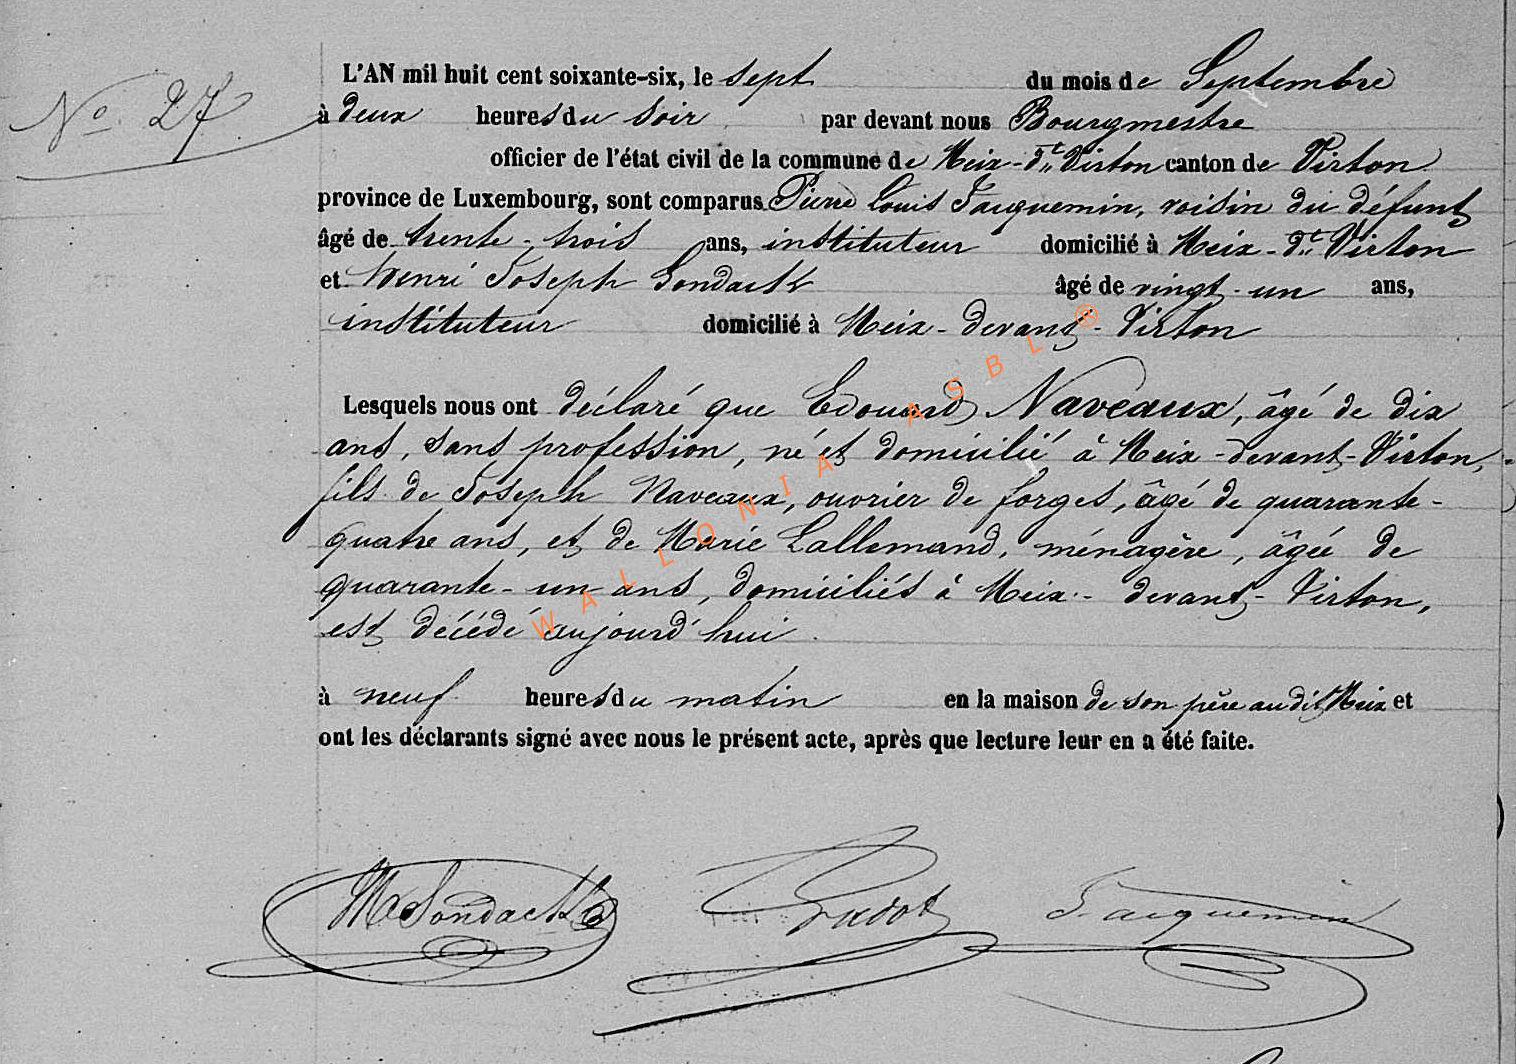 N° 27
L'AN mil huit cent soixante-six, le sept du mois de Septembre
à deux heures du soir par devant nous Bourgmestre
officier de l'état civil de la commune de Meix-dt Virton canton de Virton
province de Luxembourg, sont comparus Pierre Louis Jacquemin, voisin du défunt
âgé de trente-trois ans, instituteur domicilié à Meix-dt Virton
et Henri Joseph Gondact âgé de vingt-un ans,
instituteur domicilié à Meix-devant-Virton
Lesquels nous ont déclaré que Edouard Naveaux, âgé de dix
ans, sans profession, né et domicilié à Meix-devant-Virton,
fils de Joseph Naveaux, ouvrier de forges, âgé de quarante-
quatre ans, et de Marie Lallemand, ménagère, âgée de
quarante-un ans, domiciliés à Meix-devant-Virton,
est décédé aujourd'hui
à neuf heures du matin en la maison de son père audit Meix et
ont les déclarants signé avec nous le présent acte, après que lecture leur en a été faite.
Jacquemin
WALLONIA ASBL ®